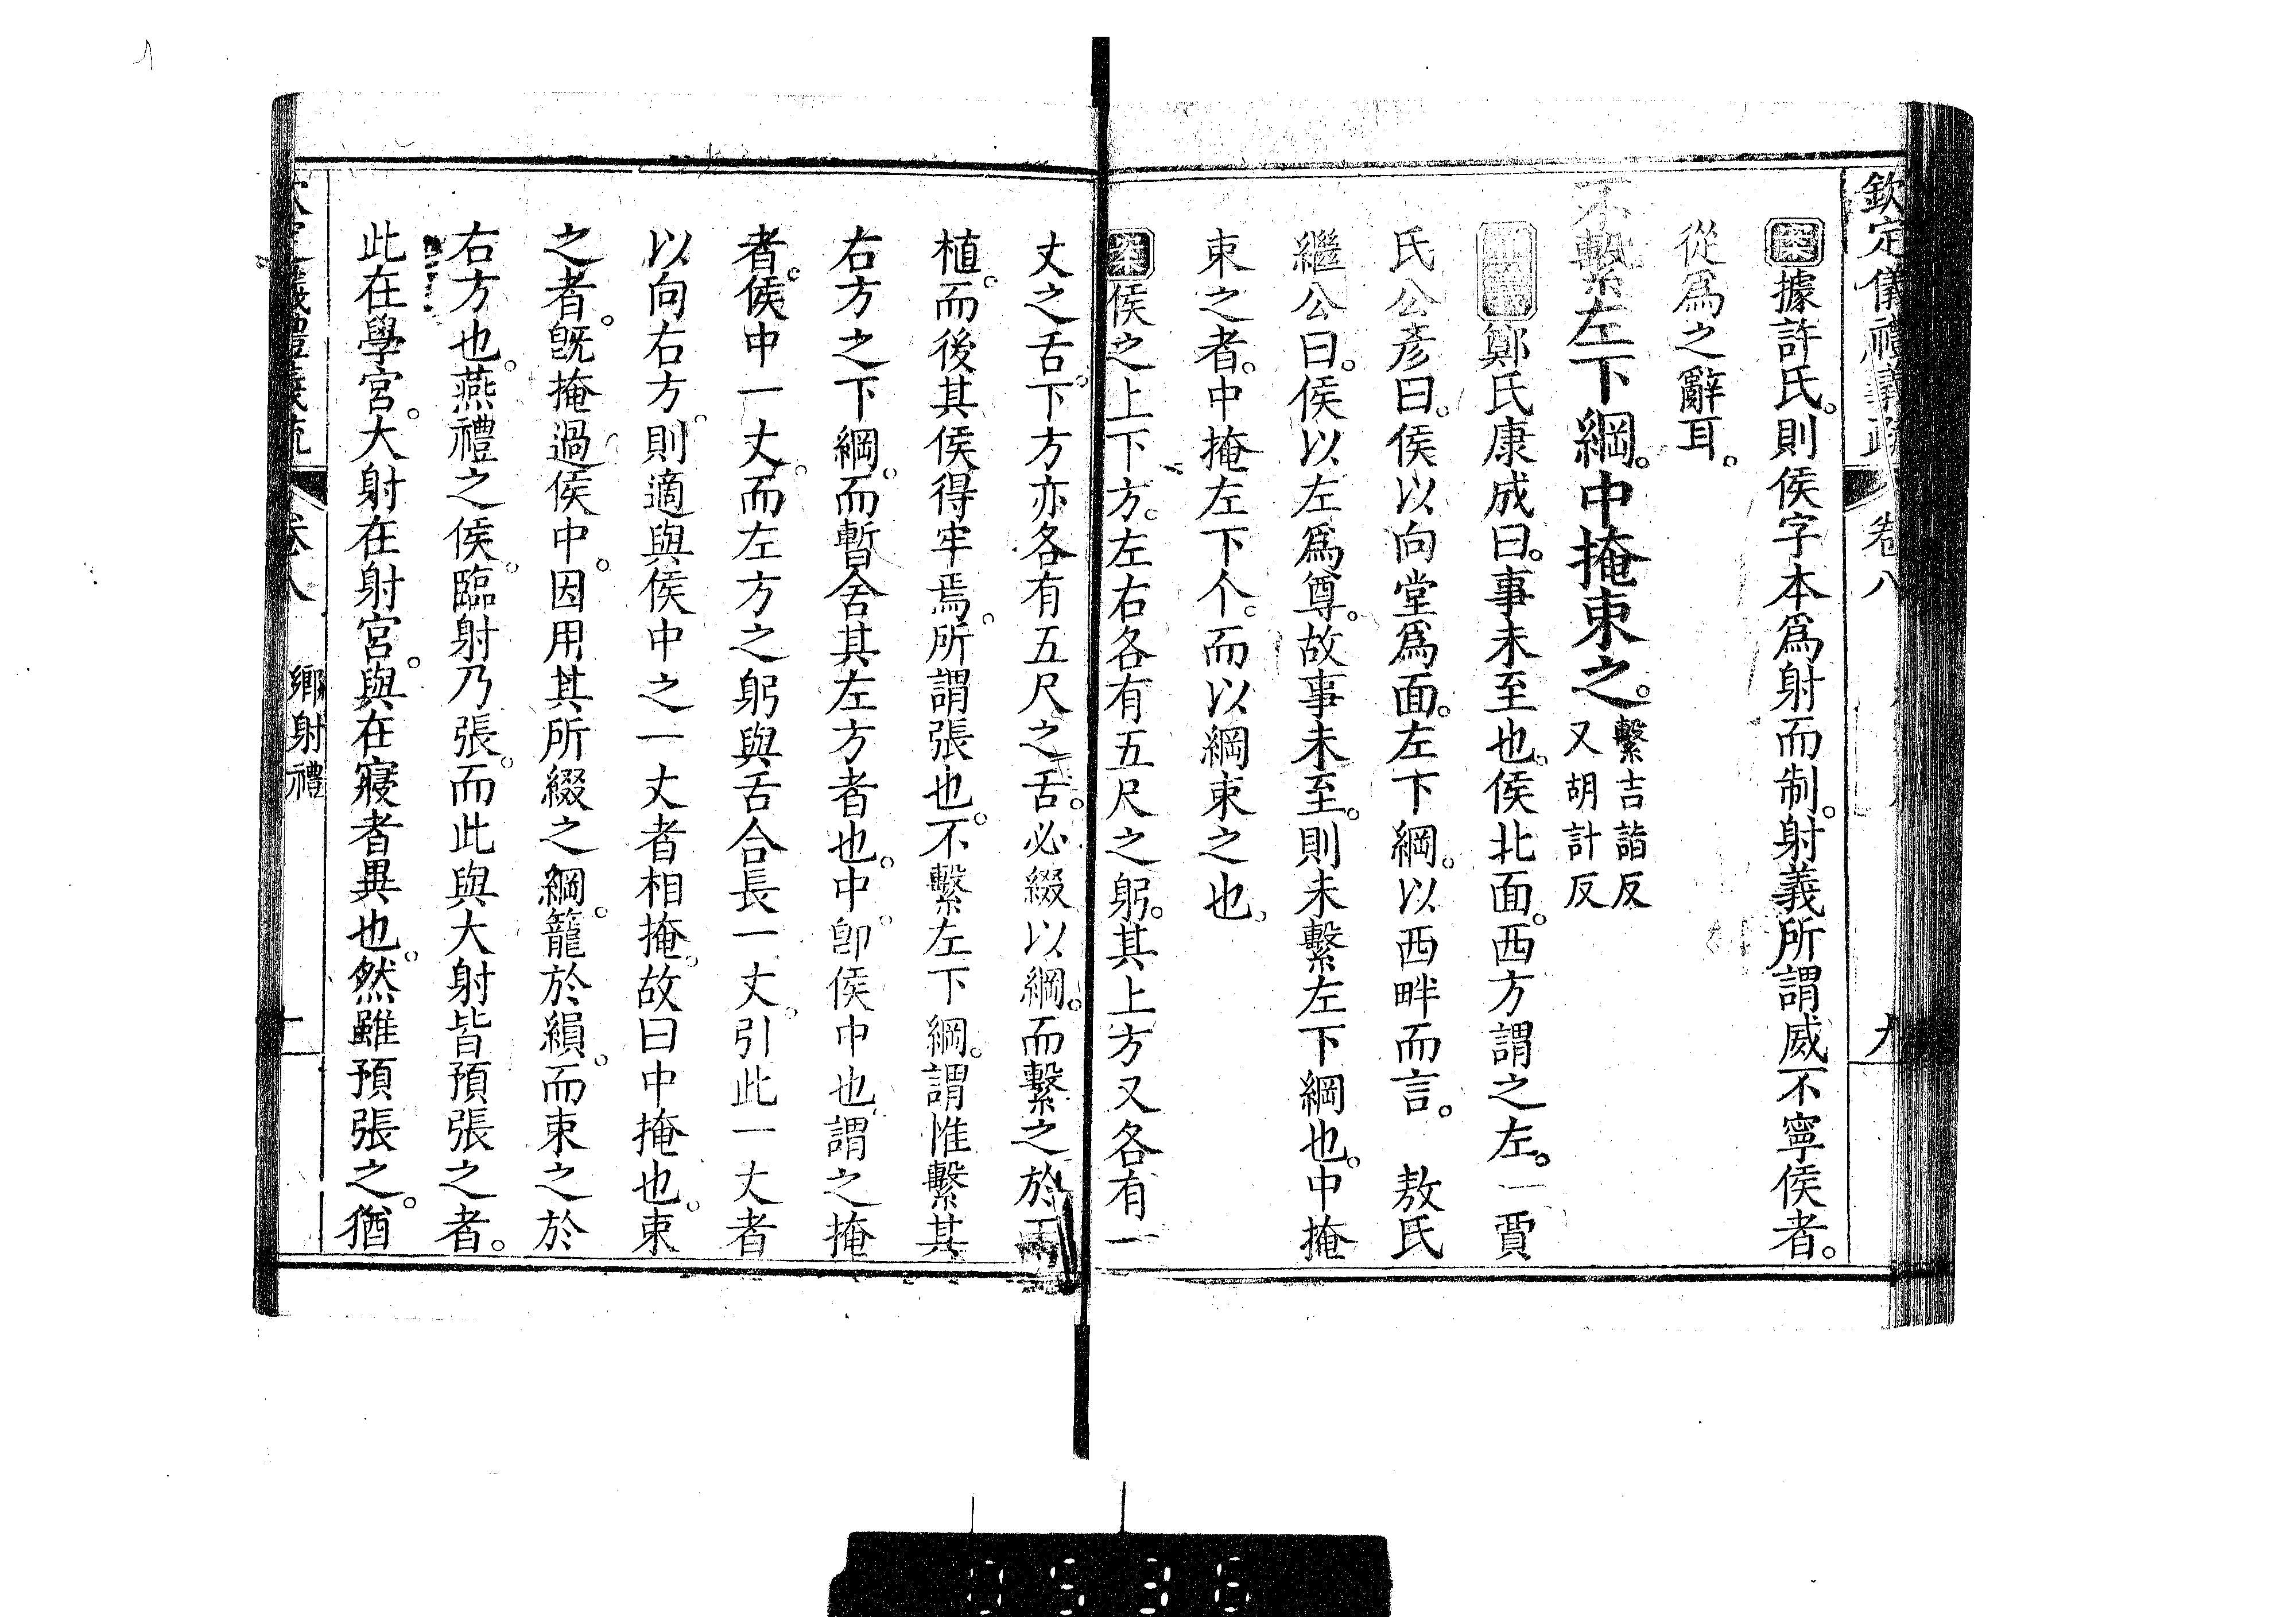 欽定儀禮義疏 卷八 九
案據許氏。則侯字本爲射而制。射義所謂威不寧侯者。
從爲之辭耳。
不繫左下綱。中掩束之。繫吉詣反
又胡計反
正義鄭氏康成曰。事未至也。侯北面。西方謂之左。 賈
氏公彥曰。侯以向堂爲面。左下綱。以西畔而言。 敖氏
繼公曰。侯以左爲尊。故事未至。則未繫左下綱也。中掩
束之者。中掩左下个。而以綱束之也。
案侯之上下方。左右各有五尺之躬。其上方又各有一
丈之舌。下方亦各有五尺之舌。必綴以綱。而繫之於
植。而後其侯得牢焉。所謂張也。不繫左下綱。謂惟繫其
右方之下綱。而暫舍其左方者也。中。卽侯中也。謂之掩
者。侯中一丈。而左方之躬與舌合長一丈。引此一丈者
以向右方。則適與侯中之一丈者相掩。故曰中掩也。束
之者。旣掩過侯中。因用其所綴之綱。籠於縜。而束之於
右方也。燕禮之侯。臨射乃張。而此與大射皆預張之者。
此在學宮。大射在射宮。與在寢者異也。然雖預張之。猶
欽定儀禮義疏 卷八 鄉射禮